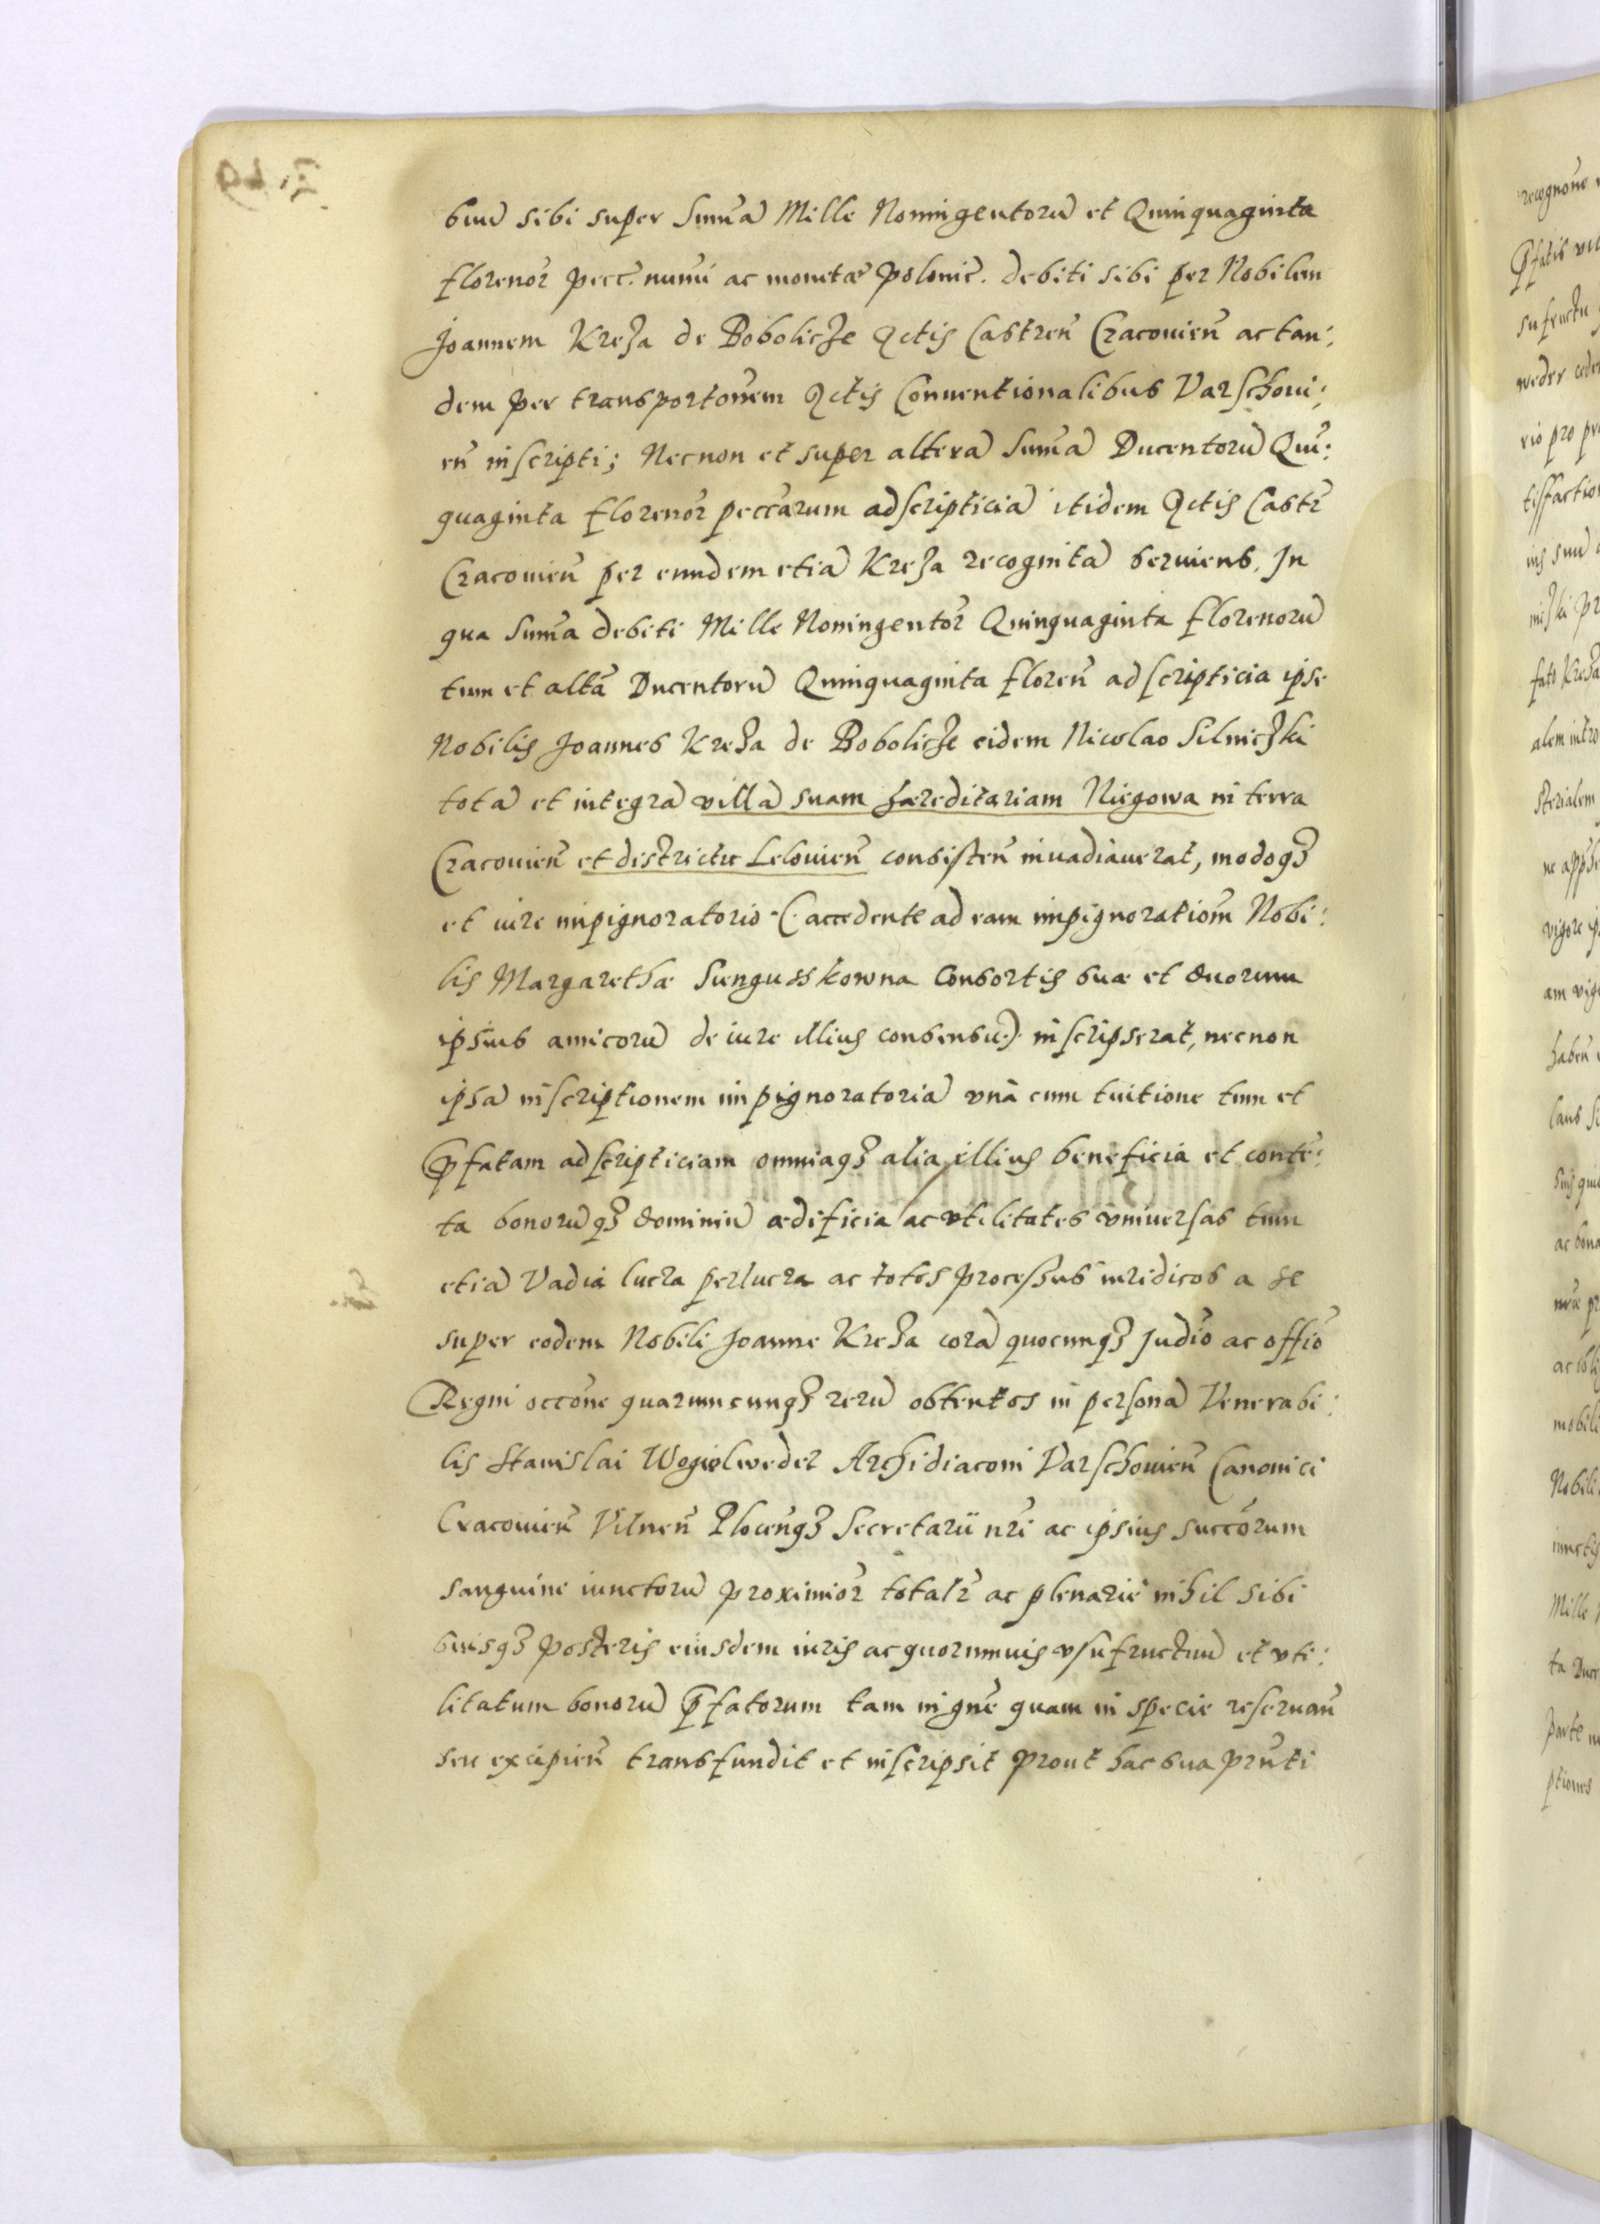 suũ sibi super Sum̃a Mille Nonningentorũ et Quinquaginta
florenor̃ pecc. num̃i ac monetæ polonic̃. debiti sibi per Nobilem
Joannem Kreza de Bobolicze Actis Castren̄ Cracouien̄ ac tan:
dem per transportoñem Actis Conuentionalibus Varschoui:
en̄ inscripti; Necnon et super alterã Sum̃a Ducentorũ Quĩ:
quaginta florenor̃ peccãrum adscripticiã itidem Actis Castr̃
Cracouien̄ per eundem etiã Kreza recognitã seruiens. In
qua Sum̃a debiti Mille Noningentor̃ Quinquaginta florenorũ
tum et alt̃a Ducentorũ Quinquaginta floren̄ adscripticia ipse
Nobilis Joannes Kreza de Bobolicze eidem Nicolao Silniczki
totã et integrã villã suam hæreditariam Niegowa in terra
Cracouien̄ et districtu Lelouien̄ consisten̄ inuadiauerat, modoqz
et iure impignoratorio (accedente ad eam impignoratiom̃ Nobi:
lis Margarethæ Sunguskowna Consortis suæ et duorum
ipsius amicorũ de iure illius consensu) inscripserat, necnon
ipsã inscriptionem impignoratoriã vnà cum tuitione tum et
p̃fatam adscripticiam omniaqz alia illius beneficia et conte:
ta bonorũqz dominiũ ædificia ac vtilitates vniuersas tum
etiã Vadia lucra perlucra ac totos processus iuridicos a se
super eodem Nobili Joanne Kreza corã quocunqz Judic̃o ac offic̃o
Regni occõne quarumcunqz rerũ obtentos in personã Venerabi:
lis Stanislai Wogielweder Archidiaconi Varschouien̄ Canonici
Cracouien̄ Vilnen̄ Plocen̄qz Secretarii nr̃i ac ipsius succõrum
sanguine iunctorũ proximior̃ totalr̃ ac plenarie nihil sibi
suisqz posteris eiusdem iuris ac quorumuis vsufructuũ et vti:
litatum bonorũ p̃fatorum tam in gñe quam in specie reseruan̄
seu excipien̄ transfundit et inscripsit prout hac sua prñti